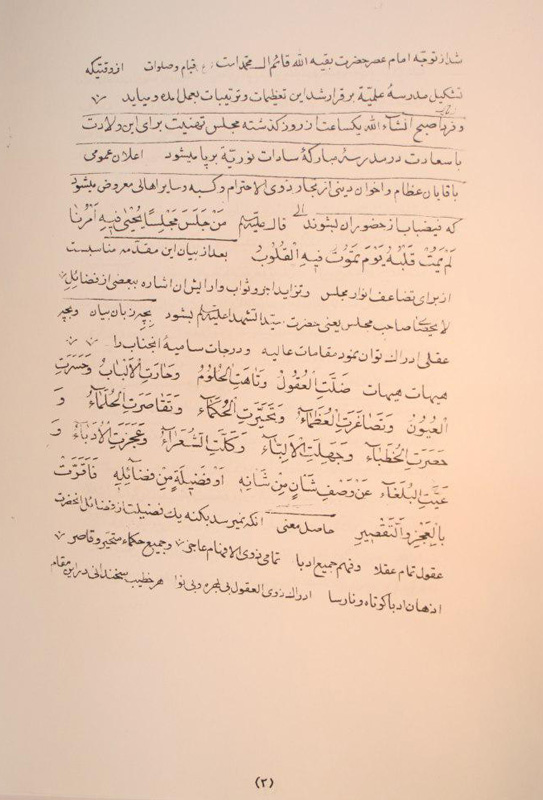 شد از توجّه امام عصر حضرت بقیه الله قائم آل محمّد است قیام و صلوات از وقتیکه
تشکیل مدرسهٔ علمیّه برقرار شد این تعظیمات و ترتیبات بعمل آمده و میاید
و فردا صبح انشاء الله یکساعت از روز گذشته مجلس تهنیت برای این ولادت
با سعادت در مدرسهٔ مبارکهٔ سادات نوریّه برپا میشود اعلان عمومی
باقایان عظام و اخوان دینی از تجار ذوی الاحترام و کسبه و سایر اهالی معروض میشود
که فیضیاب از حضور آن بشوند قال علیه‌السلام مَنْ جَلَسَ مَجْلِسًا یُحْیٰی فیهِ اَمْرُنا
لَمْ یَمُتْ قَلْبُهُ یَوْمَ تَمُوتُ فیهِ الْقُلُوبُ بعد از بیان این مقدّمه مناسبست
از برای تضاعف انوار مجلس و تزاید اجر و ثواب و آرایش آن اشاره ببعض از فضائل
لا یحصی صاحب مجلس یعنی حضرت سیّد الشهدا علیه‌السلام بشود بچه زبان بیان و بچه
عقلی ادراک توان نمود مقامات عالیه و درجات سامیهٔ آنجناب را
هیهات هیهات ضَلَّتِ الْعُقُولُ وَتاهَتِ الْحُلُومُ وَ حارَتِ الْاَلْبابُ وَ حَسَرَتِ
الْعُیُونُ وَ تَصاغَرَتِ الْعُظَماءُ وَ تَحَیَّرَتِ الْحُکَماءُ وَ تَقاصَرَتِ الْحُلَماءُ وَ
حَصَرَتِ الْخُطَباءُ وَ جَهِلَتِ الْاَلِبّاءُ وَ کَلَّتِ الشُّعَراءُ وَ عَجَزَتِ الْاُدَباءُ وَ
عَیِیَتِ الْبُلَغاءُ عَنْ وَصْفِ شَأنٍ مِنْ شَانِهِ اَوْ فَضیلَةٍ مِنْ فَضائِلِهِ فَاَقَرَّتْ
بِالْعَجْزِ وَ التَّقْصیرِ حاصل معنی آنکه نمیرسد بکنه یک فضیلت از فضائل آنحضرت
عقول تمام عقلا و فهم جمیع ادبا تمامی ذوی الافهام عاجز و جمیع حکماء متحیّر و قاصر
اذهان ادبا کوتاه و نارسا ادراک ذوی العقول بی بهره و بی نوا هر خطیب سخندانی در این مقام
(۲)